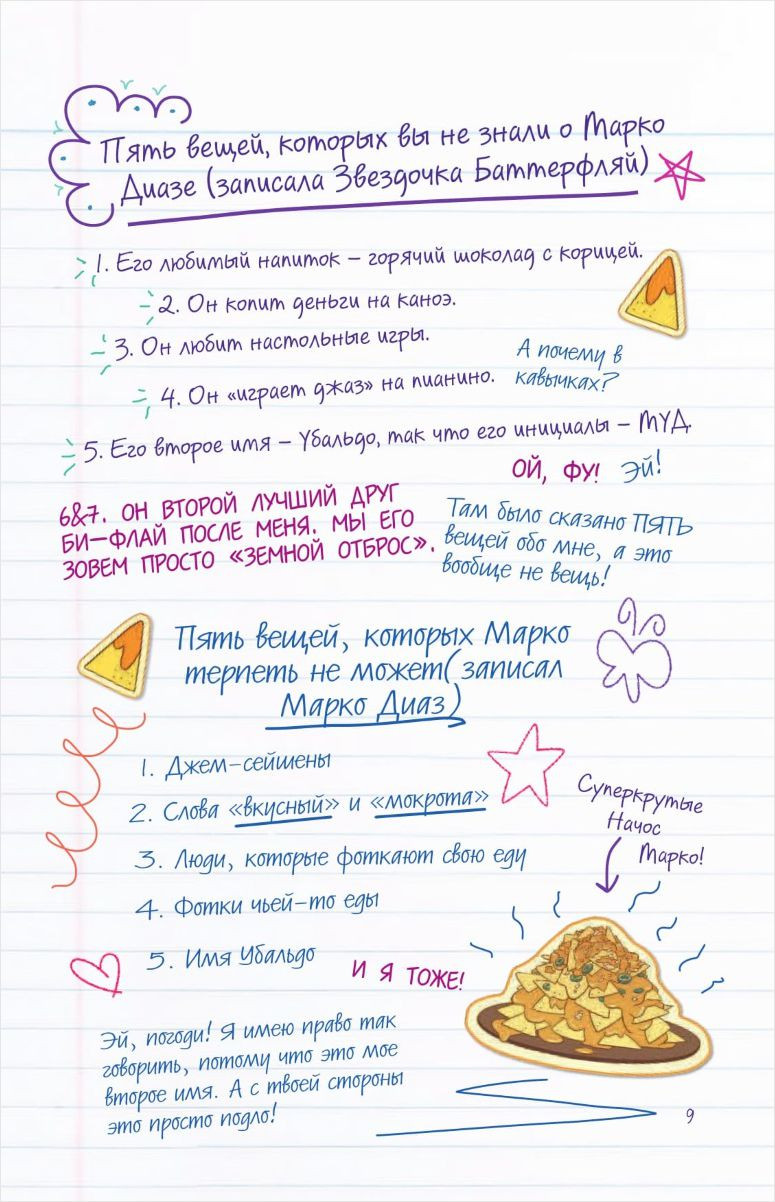 Пять вещей, которых вы не знали о Марко
Диазе (записала Звездочка Баттерфляй)
1. Его любимый напиток – горячий шоколад с корицей.
2. Он копит деньги на каноэ.
3. Он любит настольные игры.
А почему в
кавычках?
4. Он «играет джаз» на пианино.
5. Его второе имя – Убальдо, так что его инициалы – МУД.
ОЙ, ФУ!
Эй!
6&7. ОН ВТОРОЙ ЛУЧШИЙ ДРУГ
БИ–ФЛАЙ ПОСЛЕ МЕНЯ. МЫ ЕГО
ЗОВЕМ ПРОСТО «ЗЕМНОЙ ОТБРОС».
Там было сказано ПЯТЬ
вещей обо мне, а это
вообще не вещь!
Пять вещей, которых Марко
терпеть не может(записал
Марко Диаз)
1. Джем–сейшены
2. Слова «вкусный» и «мокрота»
3. Люди, которые фоткают свою еду
4. Фотки чьей–то еды
5. Имя Убальдо
И Я ТОЖЕ!
Суперкрутые
Начос
Марко!
Эй, погоди! Я имею право так
говорить, потому что это мое
второе имя. А с твоей стороны
это просто подло!
9